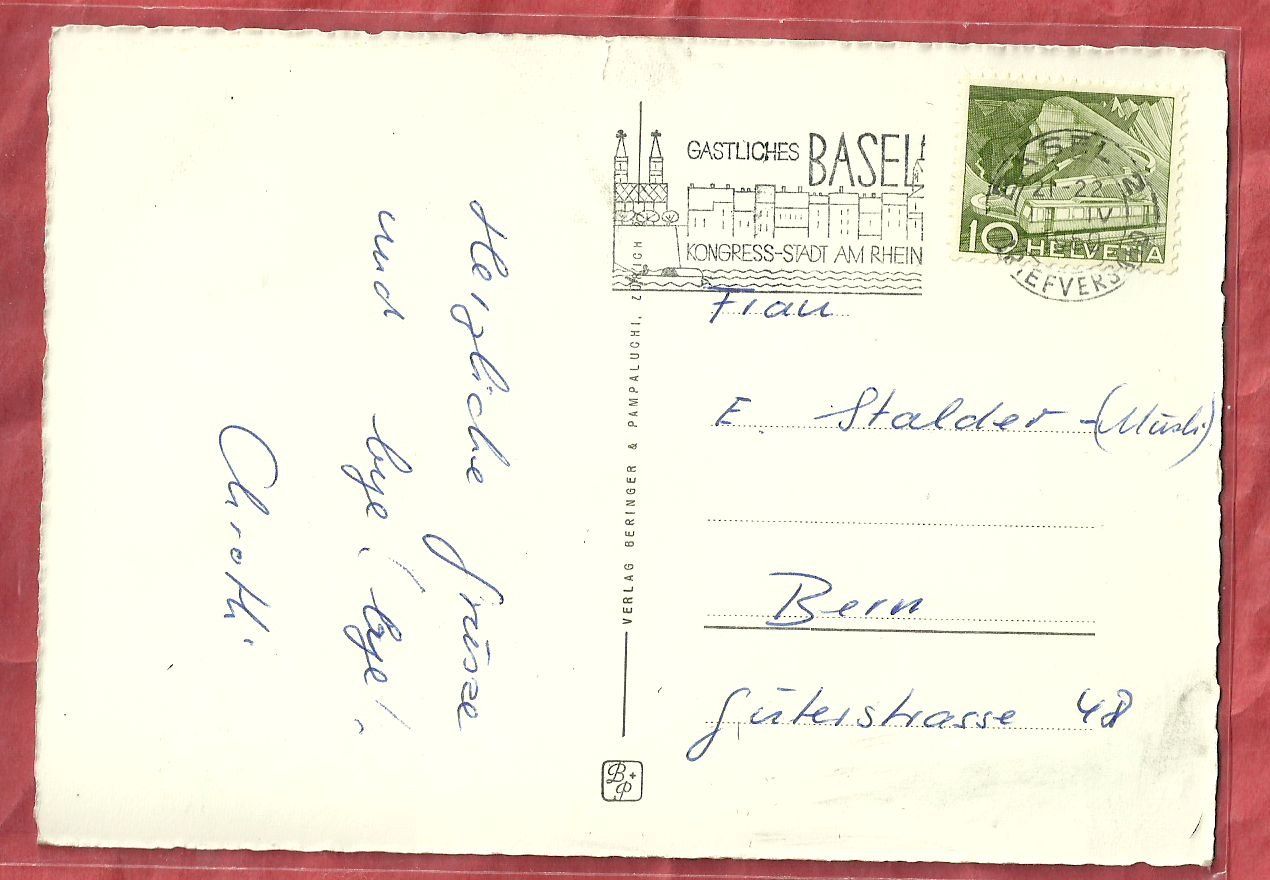 Herzliche Grüsze
und bye! bye!
VERLAG BERINGER & PAMPALUCHI, ZÜRICH
B+P
GASTLICHES BASEL
KONGRESS-STADT AM RHEIN
BASEL 2
21-22
IV
BRIEFVERSAND
10 HELVETIA
Frau
E. Stalder - (Müsli)
Bern
Güterstrasse 48